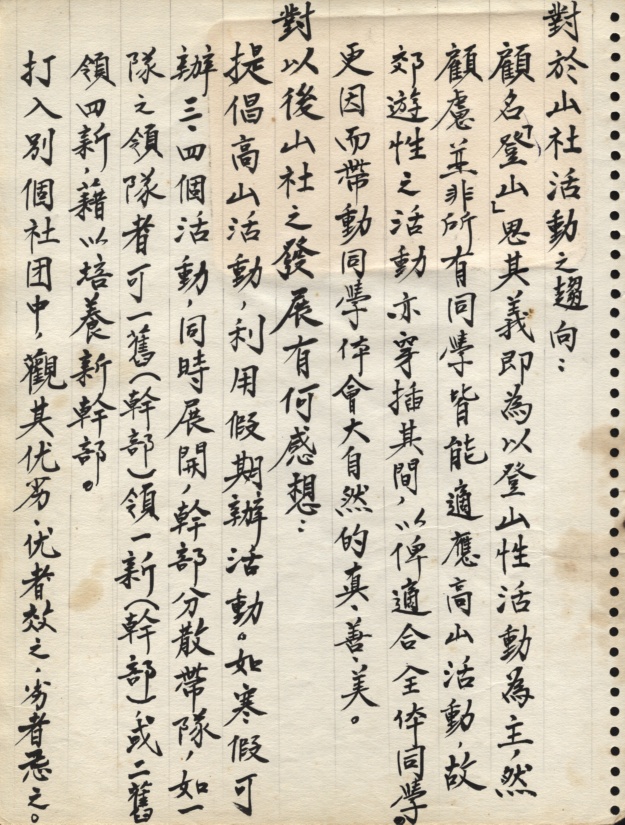 對於山社活動之趨向：
顧名「登山」思其義即為以登山性活動為主，然
顧慮並非所有同學皆能適應高山活動，故
郊遊性之活動亦穿插其間，以俾適合全体同學。
更因而帶動同學体會大自然的真、善、美。
對以後山社之發展有何感想：
提倡高山活動，利用假期辦活動。如寒假可
辦三、四個活動，同時展開，幹部分散帶隊，如一
隊之領隊者可一舊（幹部）領一新（幹部），或二舊
領四新，藉以培養新幹部。
打入別個社团中，觀其优劣、优者效之，劣者忌之。